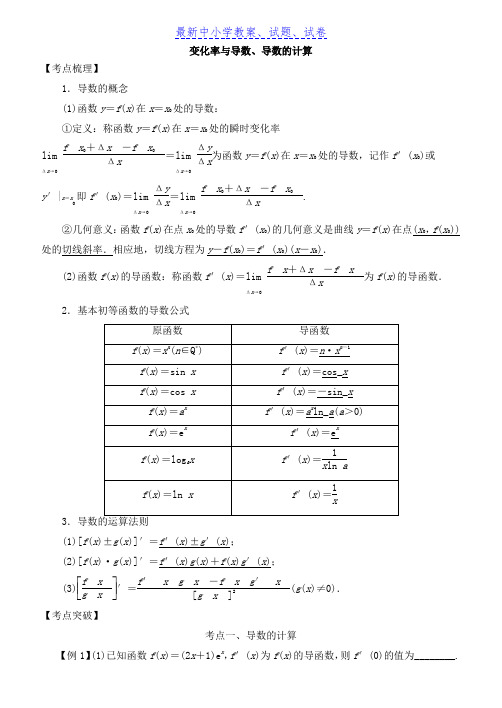 最新中小学教案、试题、试卷
变化率与导数、导数的计算
【考点梳理】
1．导数的概念
(1)函数y＝f(x)在x＝x₀处的导数：
①定义：称函数y＝f(x)在x＝x₀处的瞬时变化率
lim Δx→0 (f x₀＋Δx －f x₀)/Δx＝lim Δx→0 Δy/Δx为函数y＝f(x)在x＝x₀处的导数，记作f′(x₀)或
y′|x＝x₀即f′(x₀)＝lim Δx→0 Δy/Δx＝lim Δx→0 (f x₀＋Δx －f x₀)/Δx.
②几何意义：函数f(x)在点x₀处的导数f′(x₀)的几何意义是曲线y＝f(x)在点(x₀，f(x₀))
处的切线斜率．相应地，切线方程为y－f(x₀)＝f′(x₀)(x－x₀)．
(2)函数f(x)的导函数：称函数f′(x)＝lim Δx→0 (f x＋Δx －f x)/Δx为f(x)的导函数．
2．基本初等函数的导数公式
原函数 导函数
f(x)＝xⁿ(n∈Q*) f′(x)＝n·xⁿ⁻¹
f(x)＝sin x f′(x)＝cos_x
f(x)＝cos x f′(x)＝－sin_x
f(x)＝aˣ f′(x)＝aˣln_a(a＞0)
f(x)＝eˣ f′(x)＝eˣ
f(x)＝logₐx f′(x)＝1/(xln a)
f(x)＝ln x f′(x)＝1/x
3．导数的运算法则
(1)[f(x)±g(x)]′＝f′(x)±g′(x)；
(2)[f(x)·g(x)]′＝f′(x)g(x)＋f(x)g′(x)；
(3)[f x/g x]′＝(f′ x g x －f x g′ x)/[g x ]²(g(x)≠0)．
【考点突破】
考点一、导数的计算
【例1】(1)已知函数f(x)＝(2x＋1)eˣ，f′(x)为f(x)的导函数，则f′(0)的值为________．